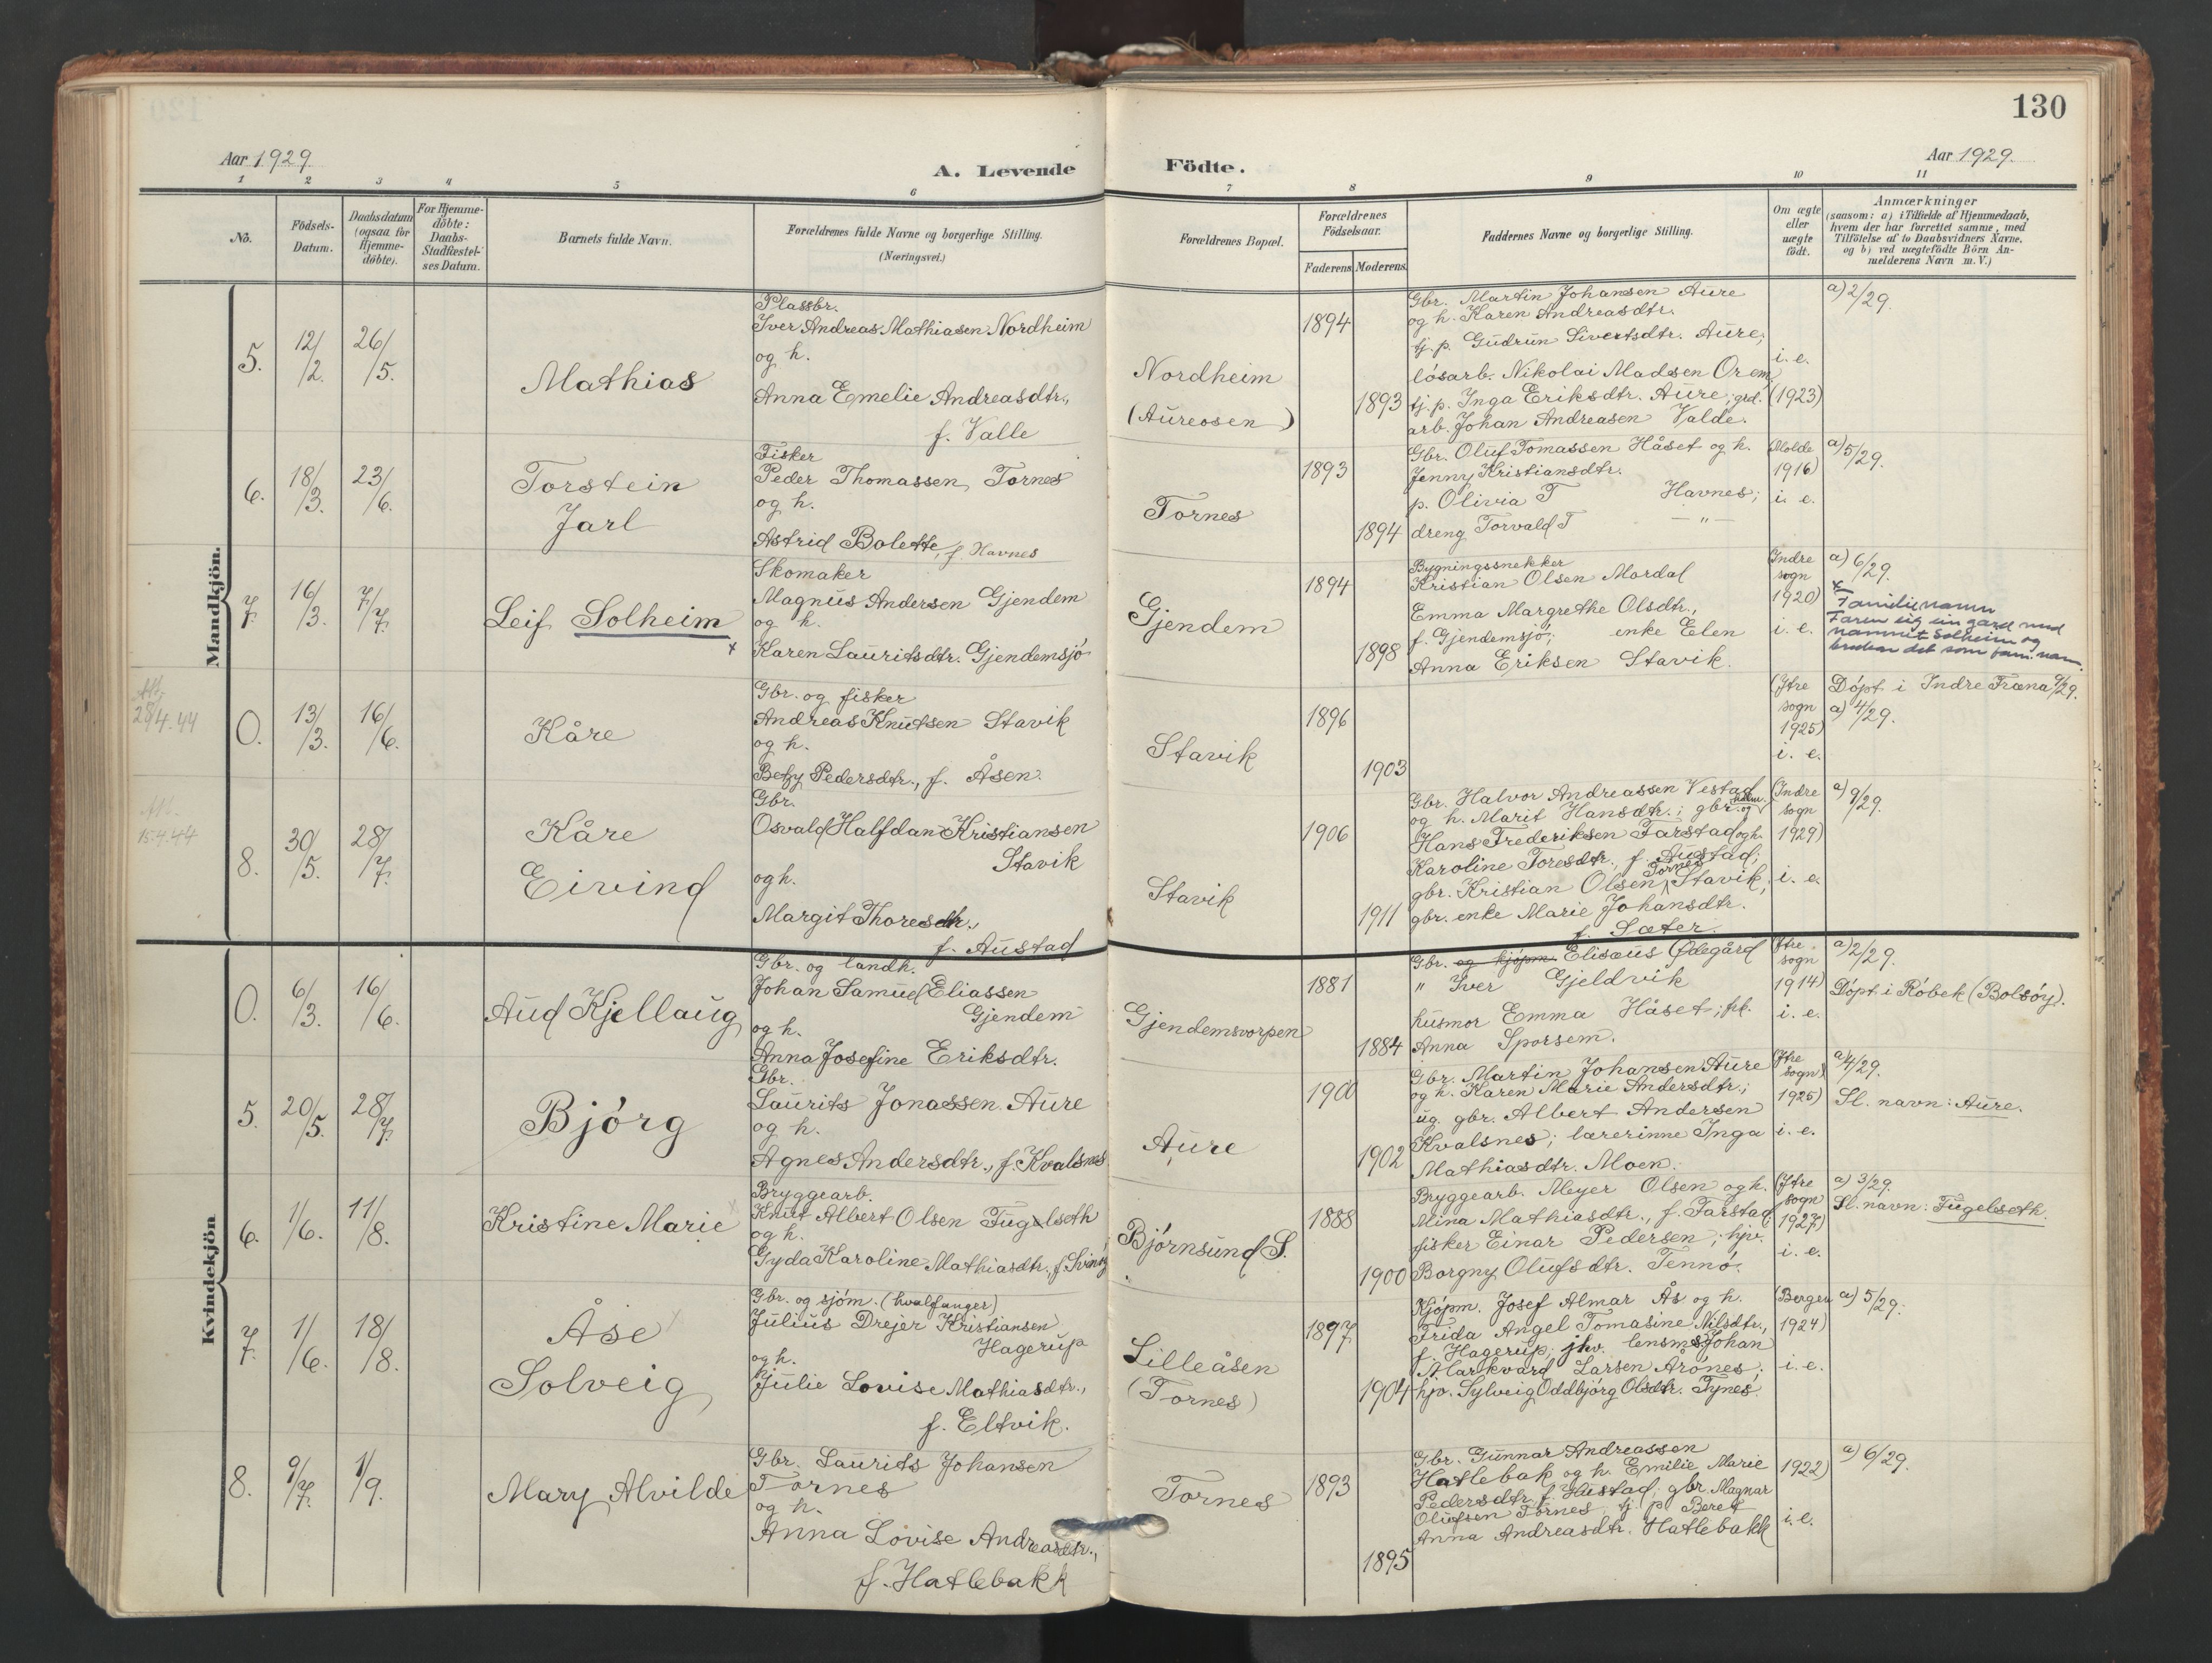 130
Aar 1929.
A. Levende
Födte.
Aar 1929.
1 2 3 4 5 6 7 8 9 10 11
No.
Födsels-
Datum.
Daabsdatum
(ogsaa for
Hjemme-
döbte).
For Hjemme-
döbte:
Daabs-
Stadfæstel-
ses Datum.
Barnets fulde Navn.
Forældrenes fulde Navne og borgerlige Stilling.
(Næringsvei.)
Forældrenes Bopæl.
Forældrenes
Födselsaar.
Faderens Moderens
Faddernes Navne og borgerlige Stilling.
Om ægte
eller
uægte
födt.
Anmærkninger
(saasom: a) i Tilfælde af Hjemmedaab,
hvem der har forrettet samme, med
Tilföielse af to Daabsvidners Navne.
og b) ved uægtefödte Börn An-
melderens Navn m. V.)
Mandkjön.
5.
12/2.
26/5.
Mathias
Plassbr.
Iver Andreas Mathiasen Nordheim
og h.
Anna Emelie Andreasdtr.,
f. Valle
Nordheim
(Aureosen)
1894
1893
Gbr. Martin Johansen Aure
og h. Karen Andreasdtr.
tj. p. Gudrun Sivertsdtr. Aure;
lósarb. Nikolai Madsen Orem,
tj. p. Inga Eriksdtr. Aure; grd.
arb. Johan Andreasen Valde.
i. e.
(1923)
a) 2/29.
6.
18/3.
23/6.
Torstein
Jarl
Fisker
Peder Thomassen Tornes
og h.
Astrid Bolette, f. Havnes
Tornes
1893
1894
Gbr. Oluf Tomassen Håset og h.
Jenny Kristiansdtr.
p. Olivia T Havnes;
dreng Torvald T — " —
(Molde
1916)
i. e.
a) 5/29.
7.
16/3.
7/7.
Leif Solheim x
Skomaker
Magnus Andersen Gjendem
og h.
Karen Lauritsdtr. Gjendemsjó
Gjendem
1894
1898
Bygningssnekker
Kristian Olsen Mordal
Emma Margrethe Olsdtr.,
f. Gjendemsjó; enke Elen
Anna Eriksen Stavik.
(Indre
sogn
1920)
i. e.
a) 6/29.
x
Familienamn
Faren eig ein gard med
namnet Solheim og
brukar det som fam. nam.
28/4.44
0.
13/3.
16/6.
Kåre
Gbr. og fisker
Andreas Knutsen Stavik
og h.
Betzy Pedersdtr., f. Åsen.
Stavik
1896
1903
(Ytre
sogn
1925)
i. e.
Dópt i Indre Fræna 9/29.
a) 4/29.
15.4.44
8.
30/5.
28/7.
Kåre
Eivind
Gbr.
Osvald Halfdan Kristiansen
Stavik
og h.
Margit Thoresdtr.,
f. Austad
Stavik
1906
1911
Gbr. Halvor Andreassen Vestad
og h. Marit Hansdtr.; gbr. og
Hans Frederiksen Farstad og h.
Karoline Toresdtr., f. Austad;
gbr. Kristian Olsen Tornes Stavik;
gbr. enke Marie Johansdtr.
f. Sæter.
(Indre
sogn
1929)
i. e.
a) 9/29.
Kvindekjön
0.
6/3.
16/6.
Aud Kjellaug
Gbr. og landh.
Johan Samuel Eliassen
Gjendem
og h.
Anna Josefine Eriksdtr.
Gjendemsvorpen
1881
1884
Gbr. og kjöpm. Elisæus Ødegård
" Iver Gjeldvik
husmor Emma Håset; frk.
Anna Sporsem.
(Ytre
sogn
1914)
i. e.
a) 2/29.
Dópt i Róbek (Bolsóy).
5.
20/5.
28/7.
Bjórg
Gbr.
Laurits Jonassen Aure
og h.
Agnes Andersdtr., f. Kvalsnes
Aure
1900
1902
Gbr. Martin Johansen Aure
og h. Karen Marie Andersdtr.;
ug. gbr. Albert Andersen
Kvalsnes; lærerinne Inga
Mathiasdtr. Moen.
(Ytre
sogn
1925)
i. e.
a) 4/29.
Sl. navn: Aure.
6.
1/6.
11/8.
Kristine Marie
Bryggearb.
Knut Albert Olsen Fugelseth
og h.
Gyda Karoline Mathiasdtr., f.
Bjórnsund S.
1888
1900
Bryggearb. Meyer Olsen og h.
Mina Mathiasdtr., f. Farstad
fisker Einar Pedersen; hpv.
Borgny Olufsdtr. Tennó.
(Ytre
sogn
1927)
i. e.
a) 3/29.
Sl. navn: Fugelseth.
7.
1/6.
18/8.
Åse
Solveig
Gbr. og sjóm. (hvalfanger)
Julius Drejer Kristiansen
Hagerup
og h.
Julie Lovise Mathiasdtr.,
f. Eltvik.
Lilleåsen
(Tornes)
1897
1904
Kjópm. Josef Almar Ås og h.
Frida Angel Tomasine Nilsdtr.,
f. Hagerup; jhv. lensms. Johan
Markvard Larsen Årónes;
hpv. Sylveig Oddbjórg Olsdtr. Tynes.
(Bergen
1924)
i. e.
a) 5/29.
8.
9/7.
1/9.
Mary Alvilde
Gbr. Laurits Johansen
Tornes
og h.
Anna Lovise Andreasdtr.,
f. Hatlebakk
Tornes
1893
1895
Gbr. Gunnar Andreassen
Hatlebak og h. Emilie Marie
Pedersdtr. f. Hustad; gbr. Magnar
Olufsen Tornes, tj. p. Beret
Anna Andreasdtr. Hatlebakk
1922)
i. e.
a) 6/29.